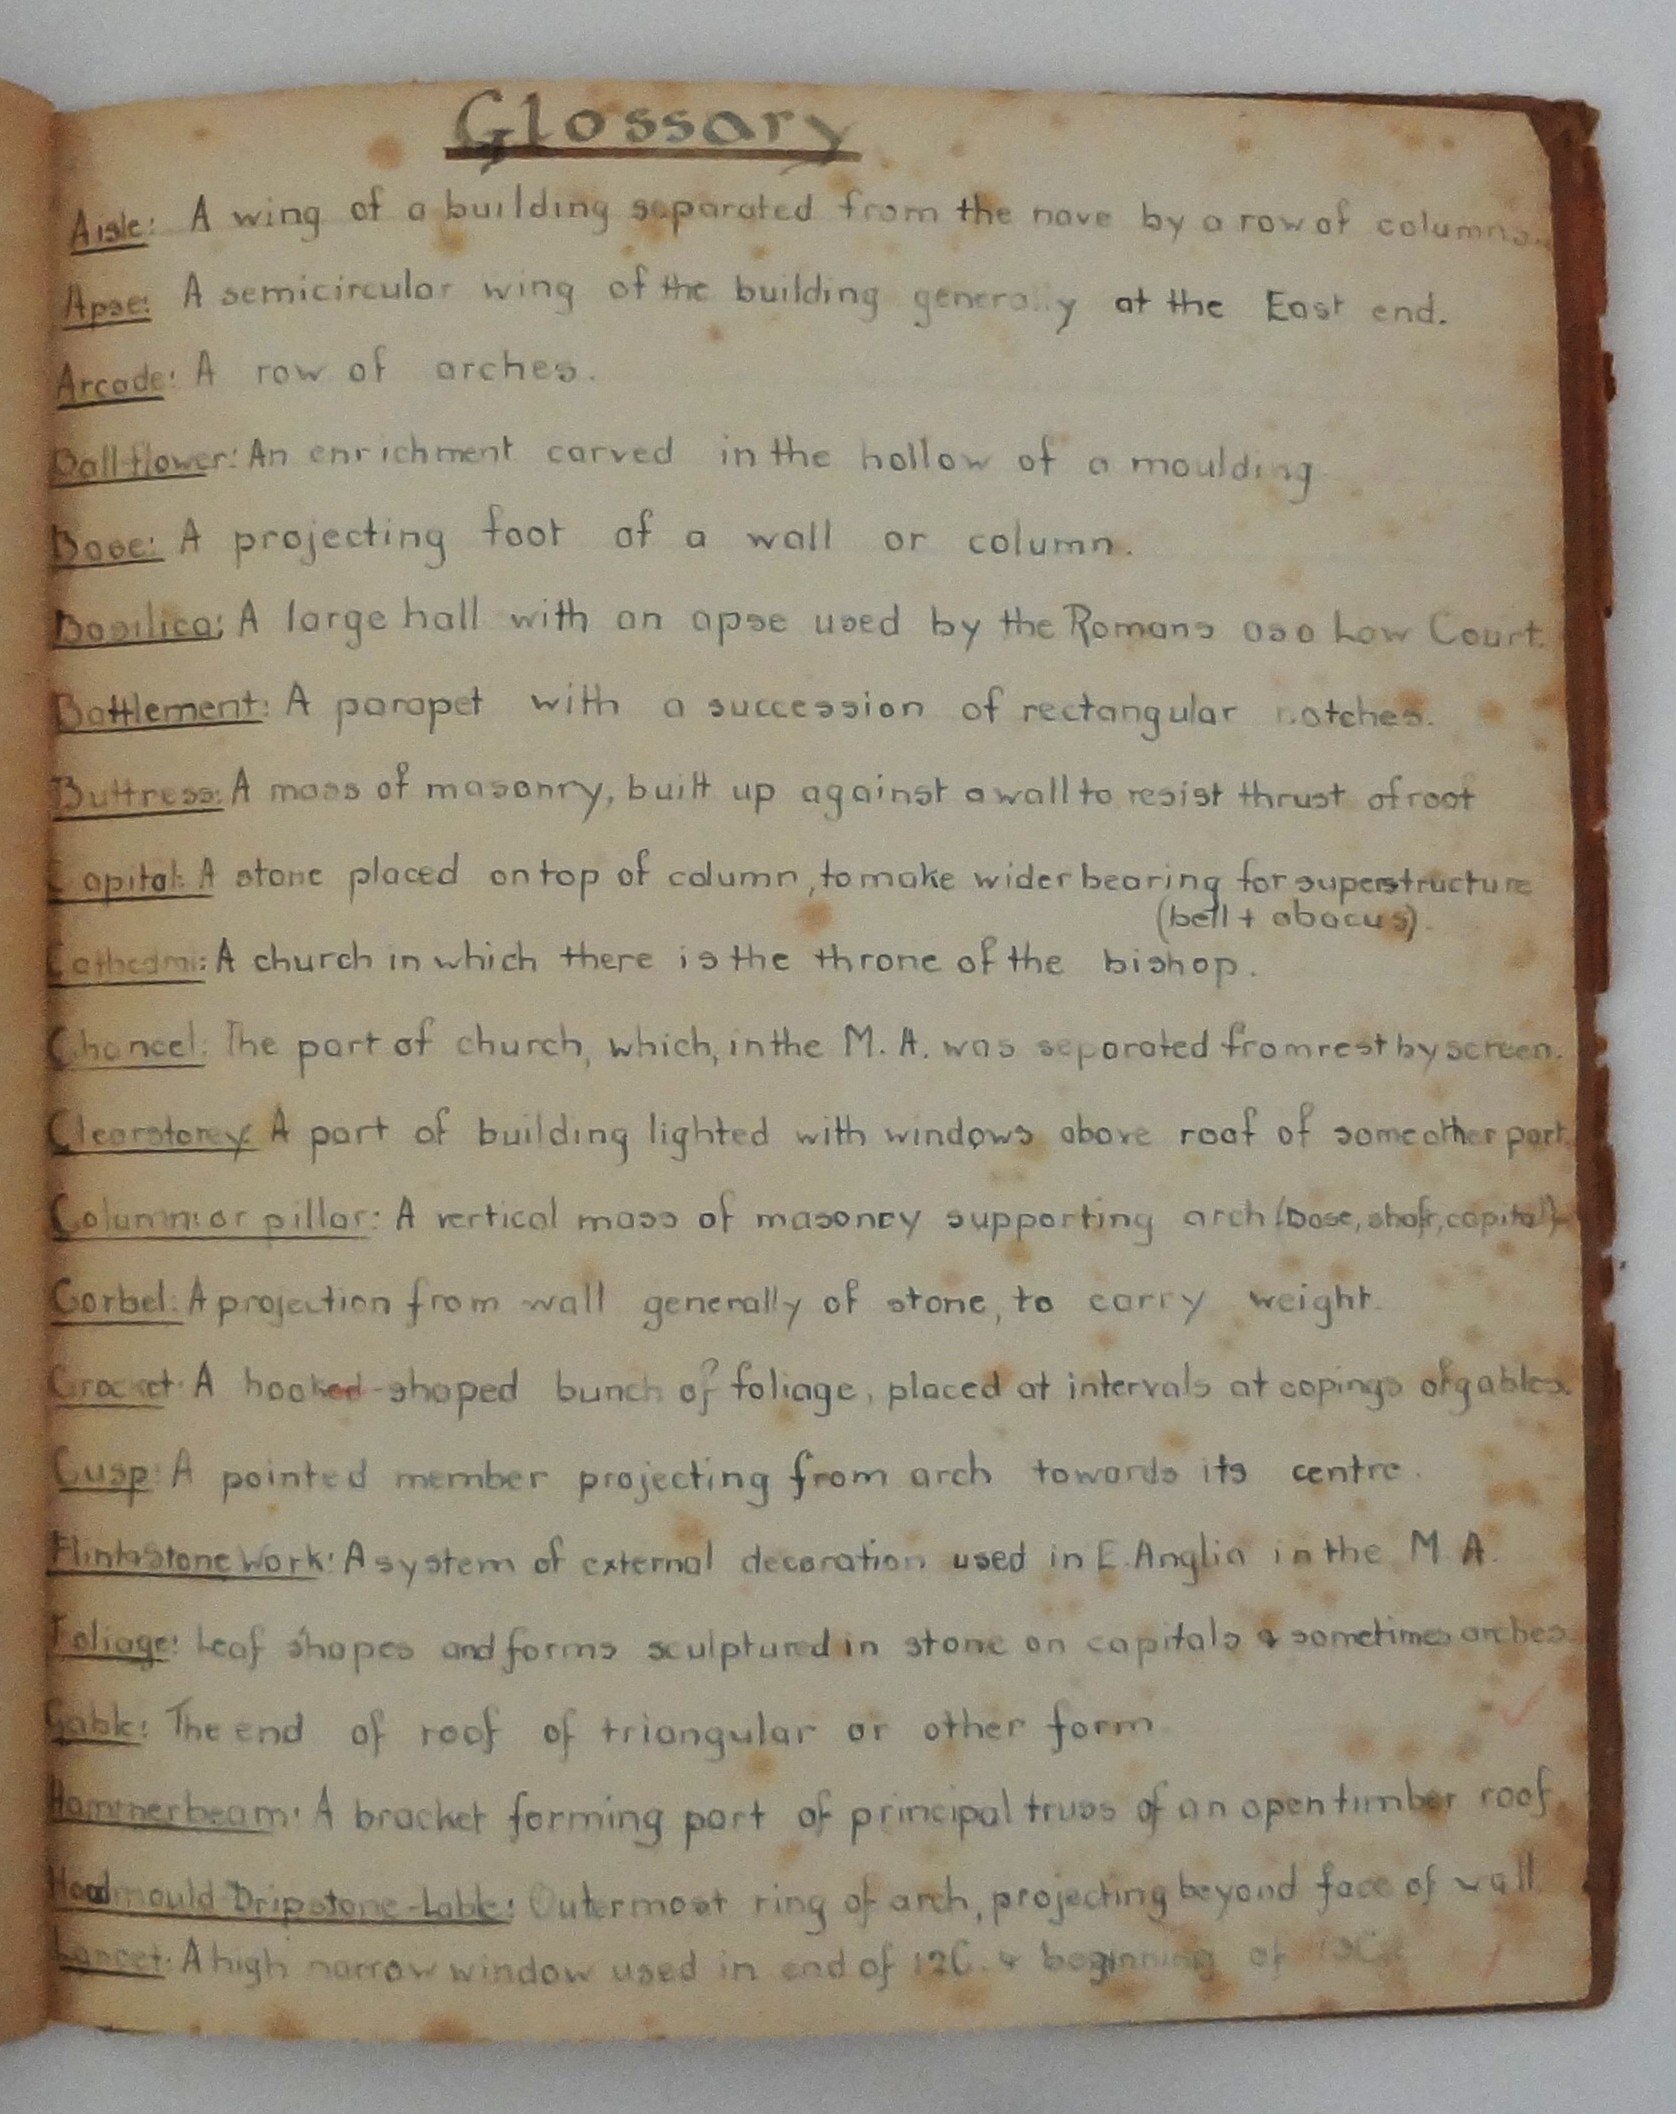 Glossary
Aisle: A wing of a building separated from the nave by a row of columns.
Apse: A semicircular wing of the building generally at the East end.
Arcade: A row of arches.
Ball flower: An enrichment carved in the hollow of a moulding
Base: A projecting foot of a wall or column.
Basilica: A large hall with an apse used by the Romans as a Law Court.
Battlement: A parapet with a succession of rectangular notches.
Buttress: A mass of masonry, built up against a wall to resist thrust of roof
Capital: A stone placed on top of column, to make wider bearing for superstructure
(bell + abacus).
Cathedral: A church in which there is the throne of the bishop.
Chancel: The part of church, which, in the M. A. was separated from rest by screen.
Clearstorey: A part of building lighted with windows above roof of some other part.
Column: or pillar: A vertical mass of masonry supporting arch (base, shaft, capital)
Corbel: A projection from wall generally of stone, to carry weight.
Crocket: A hooked-shaped bunch of foliage, placed at intervals at copings of gables.
Cusp: A pointed member projecting from arch towards its centre.
Flint & Stone Work: A system of external decoration used in E. Anglia in the M. A.
Foliage: Leaf shapes and forms sculptured in stone on capitals & sometimes arches.
Gable: The end of roof of triangular or other form
Hammerbeam: A bracket forming part of principal truss of an open timber roof
Hoodmould-Dripstone-Lable: Outermost ring of arch, projecting beyond face of wall.
Lancet: A high narrow window used in end of 12C. & beginning of 13C.